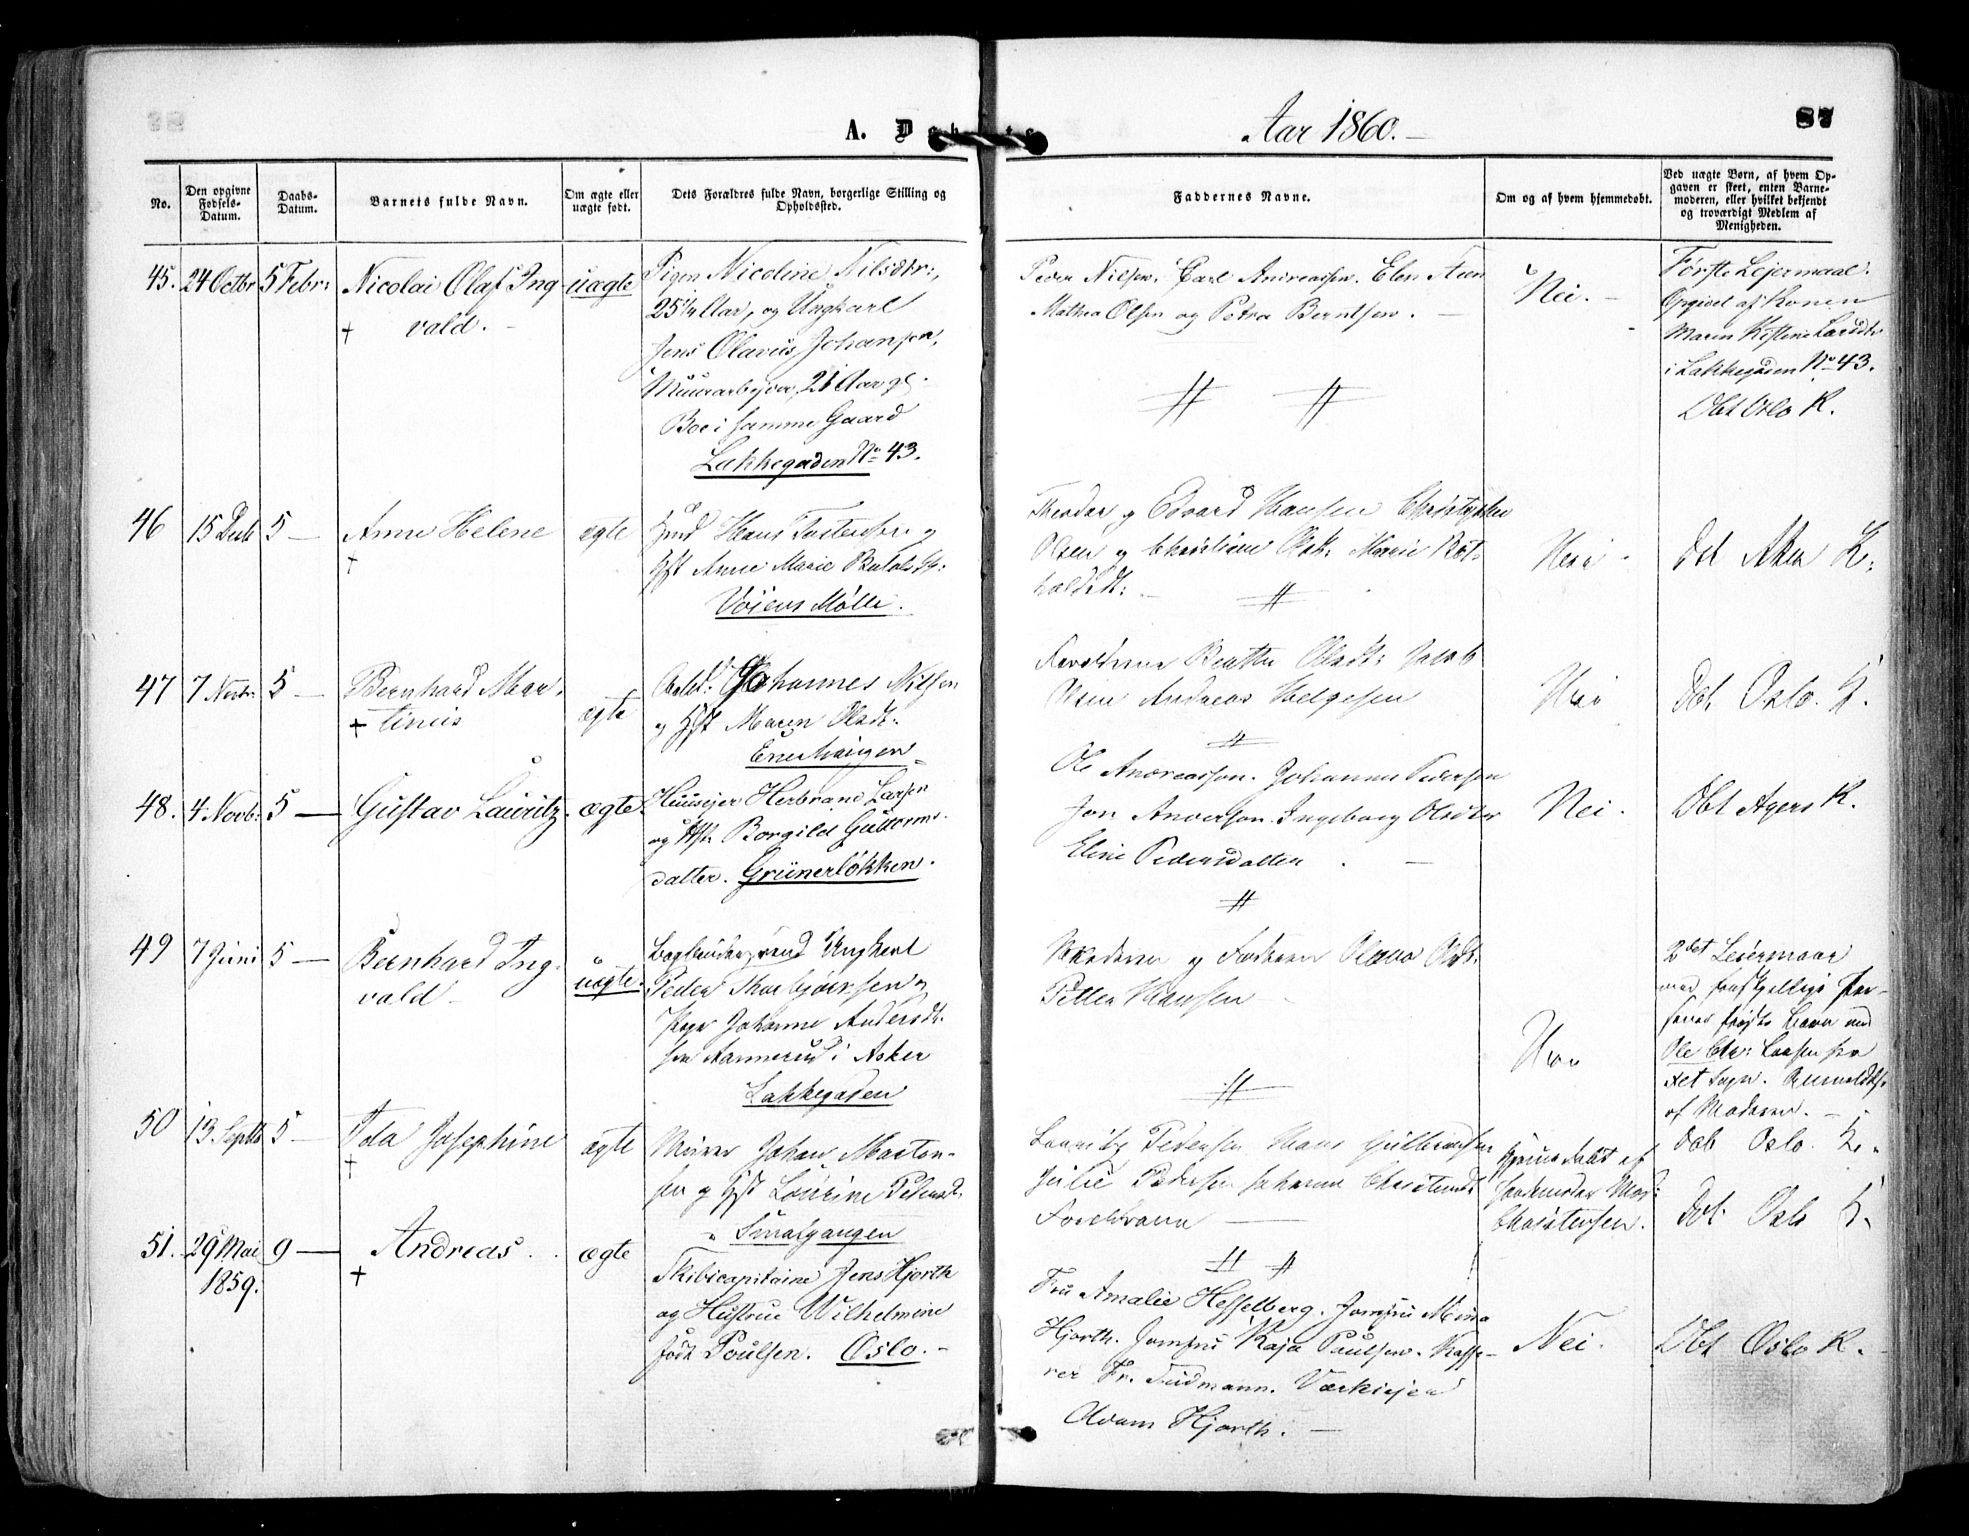 A. D
Aar 1860.
87
No.
Den opgivne Fødsels-Datum.
Daabs-Datum.
Barnets fulde Navn.
Om ægte eller uægte født.
Dets Forældres fulde Navn, borgerlige Stilling og Opholdssted.
Faddernes Navne.
Om og af hvem hjemmedøbt.
Ved uægte Børn, af hvem Op-
gaven er skeet, enten Barne-
moderen, eller hvilket bekjendt
og troværdigt Medlem af
Menigheden.
45. 24 Octbr 5 Febr: Nicolai Olaf Ing
vald.
uægte
Pigen Nicoline Nilsdtr:,
25 1/4 Aar, og Ungkarl
Jens Olavus Johansen,
Muurarbejder, 21 Aar gl.
Boe i samme Gaard
Lakkegaden No 43.
Peder Nielsen. Carl Andreassen. Elen
Mathea Olsen og Petra Berntsen.
Nei.
Første Lejermaal.
Opgivet af Konen
Maren Larsdtr
i Lakkegaden No 43.
Dbt Oslo K.
46 15 Decb 5 — Anne Helene
ægte
Hans Torstensen og
Hst Anne Marie
Vøiens Mølle.
Theodor og Edvard Hansen
Olsen og Christiane Olsd: Marie
Nei
Dbt Aker K:
47 7 Novbr: 5 — Bernhard Mar-
tinius
ægte
Johannes Nilsen
og Hst Maren Olsdt:
Enerhaugen
Forældrene Beathe Olsdt: Jacob
Olsen Andreas Helgesen
Nei
Dbt. Oslo. K.
48. 4. Novb: 5 — Gustav Lauritz.
ægte.
Huusejer Herbrand Larsen
og Hst Borgild Guttorms-
datter. Grünerløkken.
Ole Andreassen. Johannes Pedersen
Jon Anderson. Ingeborg Olsdtr
Eline Pedersdatter
Nei.
Dbt Agers K.
49 7 Juni 5 — Bernhard Ing-
vald
uægte.
Bogbindersvend Ungkarl
Peder Thorbjørnsen og
Pige Johanne Andersdt.
fra Aamerud i Asker
Lakkegaden
Moderen og Faderen Olava Olsdt.
Petter Hansen
Nei
2det Leiermaal
med forskjellige Per-
soner første Barn med
Ole Chr: Larsen fra
af Moderen.
Dbt Oslo. K.
50 13. Septb 5 — Ida Josephine
ægte
Murer Johan Morten-
sen og Hst Lourine Pedersdt.
Smalgangen
Lauritz Pedersen Hans Gulbrandsen
Julie Pedersen Johanne
Forældrene
Hjemmedøbt af
Jordemoder Mad:
Christensen.
Dbt. Oslo K.
51. 29 Mai
1859.
9 — Andreas.
ægte
Skibscapitaine Jens Hjorth
og Hustrue Wilhelmine
født Poulsen. Oslo.
Fru Amalie Hesselberg. Jomfru Mina
Hjorth. Jomfru Kaja Paulsen. Kasse-
rer Fr. Tidmann. Værkiejer
Adam Hjorth.
Nei.
Dbt Oslo K.